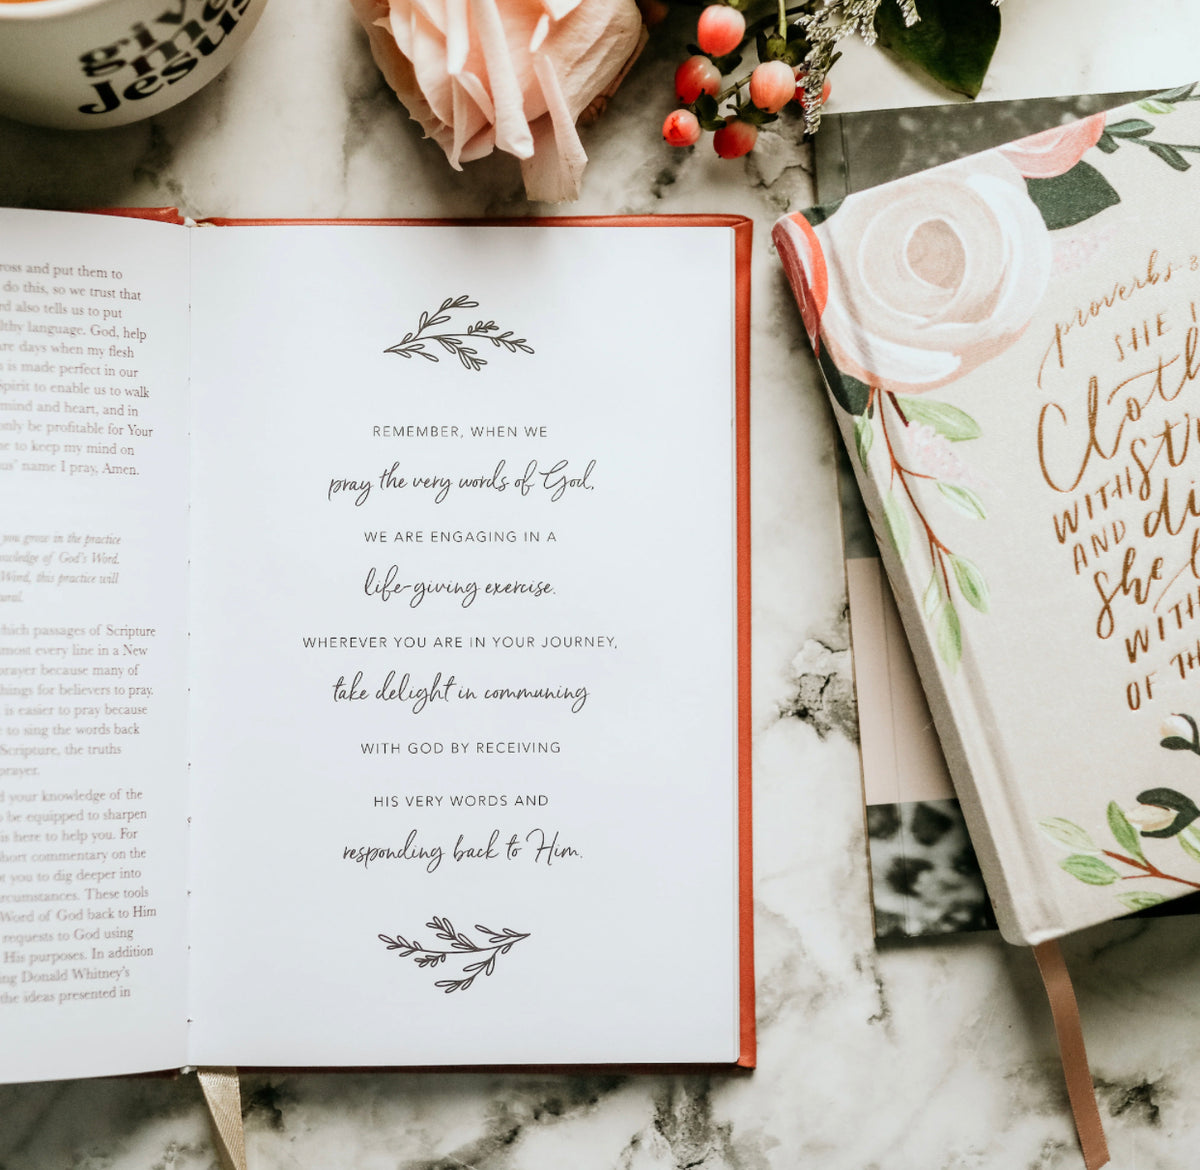 give
me
Jesus
ross and put them to
do this, so we trust that
rd also tells us to put
lthy language. God, help
are days when my flesh
is made perfect in our
Spirit to enable us to walk
mind and heart, and in
only be profitable for Your
me to keep my mind on
us' name I pray, Amen.
you grow in the practice
owledge of God's Word.
Word, this practice will
ural.
hich passages of Scripture
most every line in a New
prayer because many of
hings for believers to pray.
is easier to pray because
to sing the words back
Scripture, the truths
prayer.
d your knowledge of the
be equipped to sharpen
is here to help you. For
hort commentary on the
you to dig deeper into
rcumstances. These tools
Word of God back to Him
requests to God using
His purposes. In addition
ing Donald Whitney's
the ideas presented in
REMEMBER, WHEN WE
pray the very words of God,
WE ARE ENGAGING IN A
life-giving exercise.
WHEREVER YOU ARE IN YOUR JOURNEY,
take delight in communing
WITH GOD BY RECEIVING
HIS VERY WORDS AND
responding back to Him.
proverbs 3
SHE I
Cloth
WITH STR
AND di
She l
WITH
OF TH